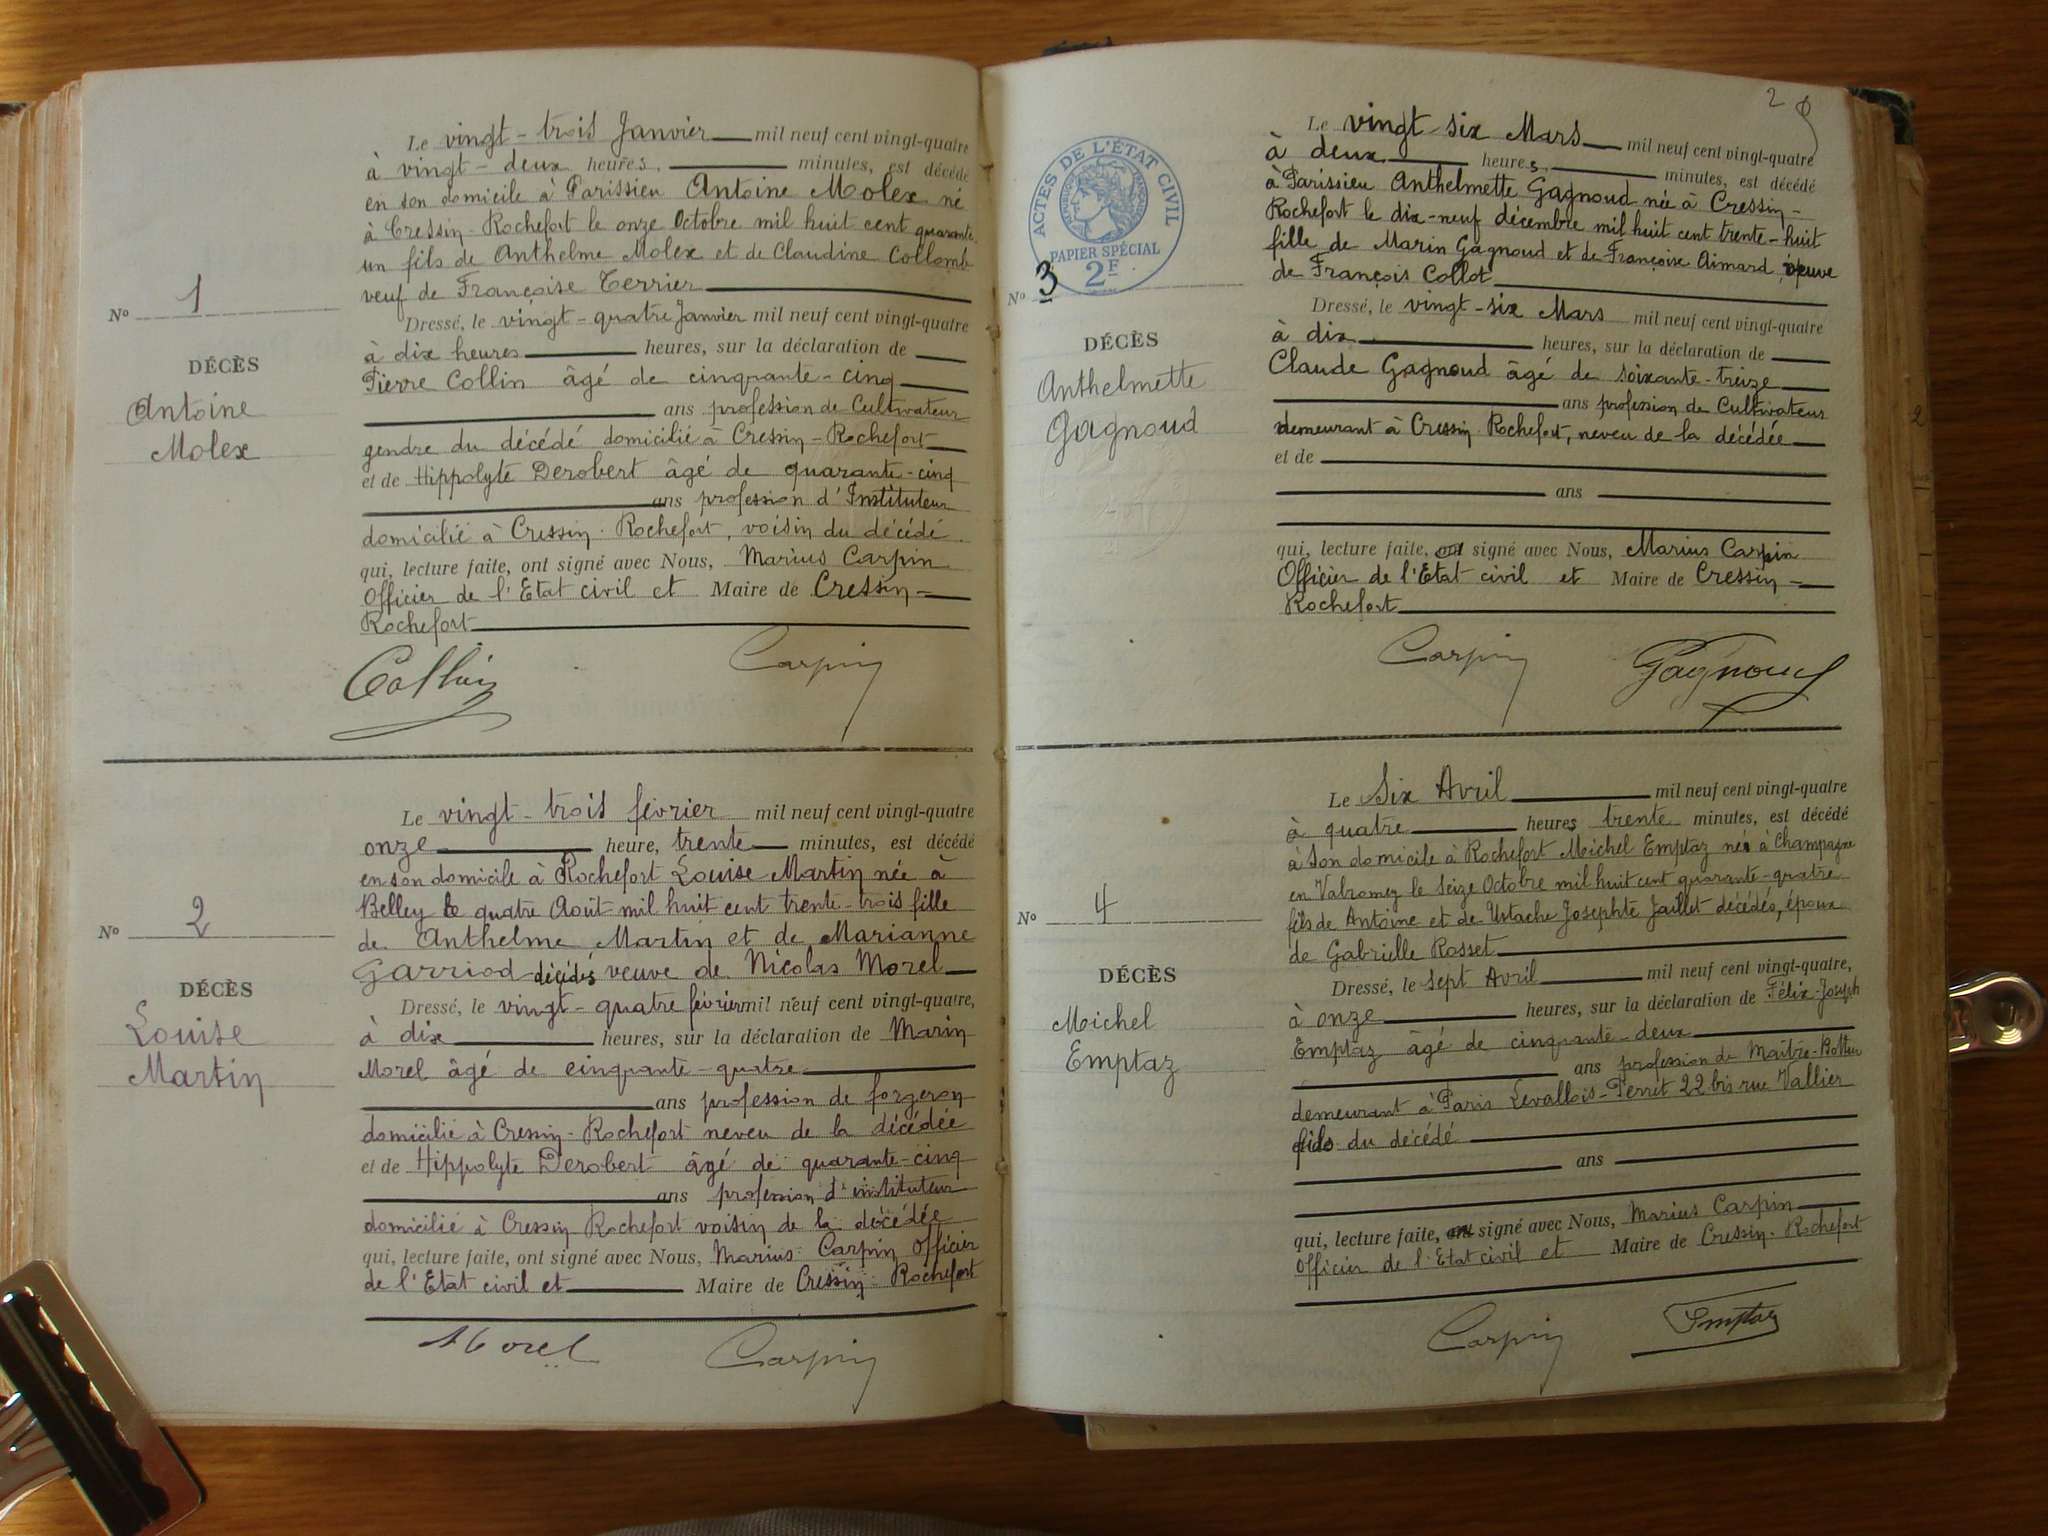 Le vingt-trois Janvier mil neuf cent vingt-quatre
à vingt-deux heures, minutes, est décédé
en son domicile à Parissieu Antoine Molex né
à Cressin-Rochefort le onze Octobre mil huit cent quarante
un fils de Anthelme Molex et de Claudine Collomb
veuf de Françoise Terrier
Dressé, le vingt-quatre Janvier mil neuf cent vingt-quatre
à dix heures heures, sur la déclaration de
Pierre Collin âgé de cinquante-cinq
ans profession de Cultivateur
gendre du décédé domicilié à Cressin-Rochefort
et de Hippolyte Derobert âgé de quarante-cinq
ans profession d'Instituteur
domicilié à Cressin-Rochefort, voisin du décédé
qui, lecture faite, ont signé avec Nous, Marius Carpin
Officier de l'Etat civil et Maire de Cressin-
Rochefort
Collin Carpin
No 1
DÉCÈS
Antoine
Molex
Le vingt-trois février mil neuf cent vingt-quatre
onze heure, trente minutes, est décédé
en son domicile à Rochefort Louise Martin née à
Belley le quatre Août mil huit cent trente-trois fille
de Anthelme Martin et de Marianne
Garriod décédés veuve de Nicolas Morel
Dressé, le vingt-quatre février mil neuf cent vingt-quatre,
à dix heures, sur la déclaration de Marin
Morel âgé de cinquante-quatre
ans profession de forgeron
domicilié à Cressin-Rochefort neveu de la décédée
et de Hippolyte Derobert âgé de quarante-cinq
ans profession d'instituteur
domicilié à Cressin Rochefort voisin de la décédée
qui, lecture faite, ont signé avec Nous, Marius Carpin Officier
de l'Etat civil et Maire de Cressin-Rochefort
Morel Carpin
No 2
DÉCÈS
Louise
Martin
2
ACTES DE L'ÉTAT CIVIL
PAPIER SPÉCIAL
2F
No 3
DÉCÈS
Anthelmette
Gagnoud
Le vingt-six Mars mil neuf cent vingt-quatre
à deux heures, minutes, est décédé
à Parissieu Anthelmette Gagnoud née à Cressin-
Rochefort le dix-neuf décembre mil huit cent trente-huit
fille de Marin Gagnoud et de Françoise Aimard, veuve
de François Collot
Dressé, le vingt-six Mars mil neuf cent vingt-quatre
à dix heures, sur la déclaration de
Claude Gagnoud âgé de soixante-treize
ans profession de Cultivateur
demeurant à Cressin Rochefort, neveu de la décédée
et de
ans
qui, lecture faite, ont signé avec Nous, Marius Carpin
Officier de l'Etat civil et Maire de Cressin-
Rochefort
Carpin Gagnoud
No 4
DÉCÈS
Michel
Emptaz
Le Six Avril mil neuf cent vingt-quatre
à quatre heures trente minutes, est décédé
à Son domicile à Rochefort Michel Emptaz né à Champagne
en Valromey le seize Octobre mil huit cent quarante-quatre
fils de Antoine et de Ustache Josephte Jaillet décédés, époux
de Gabrielle Rosset
Dressé, le sept Avril mil neuf cent vingt-quatre,
à onze heures, sur la déclaration de Félix-Joseph
Emptaz âgé de cinquante-deux
ans profession de Maître-Bottier
demeurant à Paris Levallois-Perret 22 bis rue Vallier
fils du décédé
ans
qui, lecture faite, ont signé avec Nous, Marius Carpin
Officier de l'Etat civil et Maire de Cressin-Rochefort
Carpin Emptaz